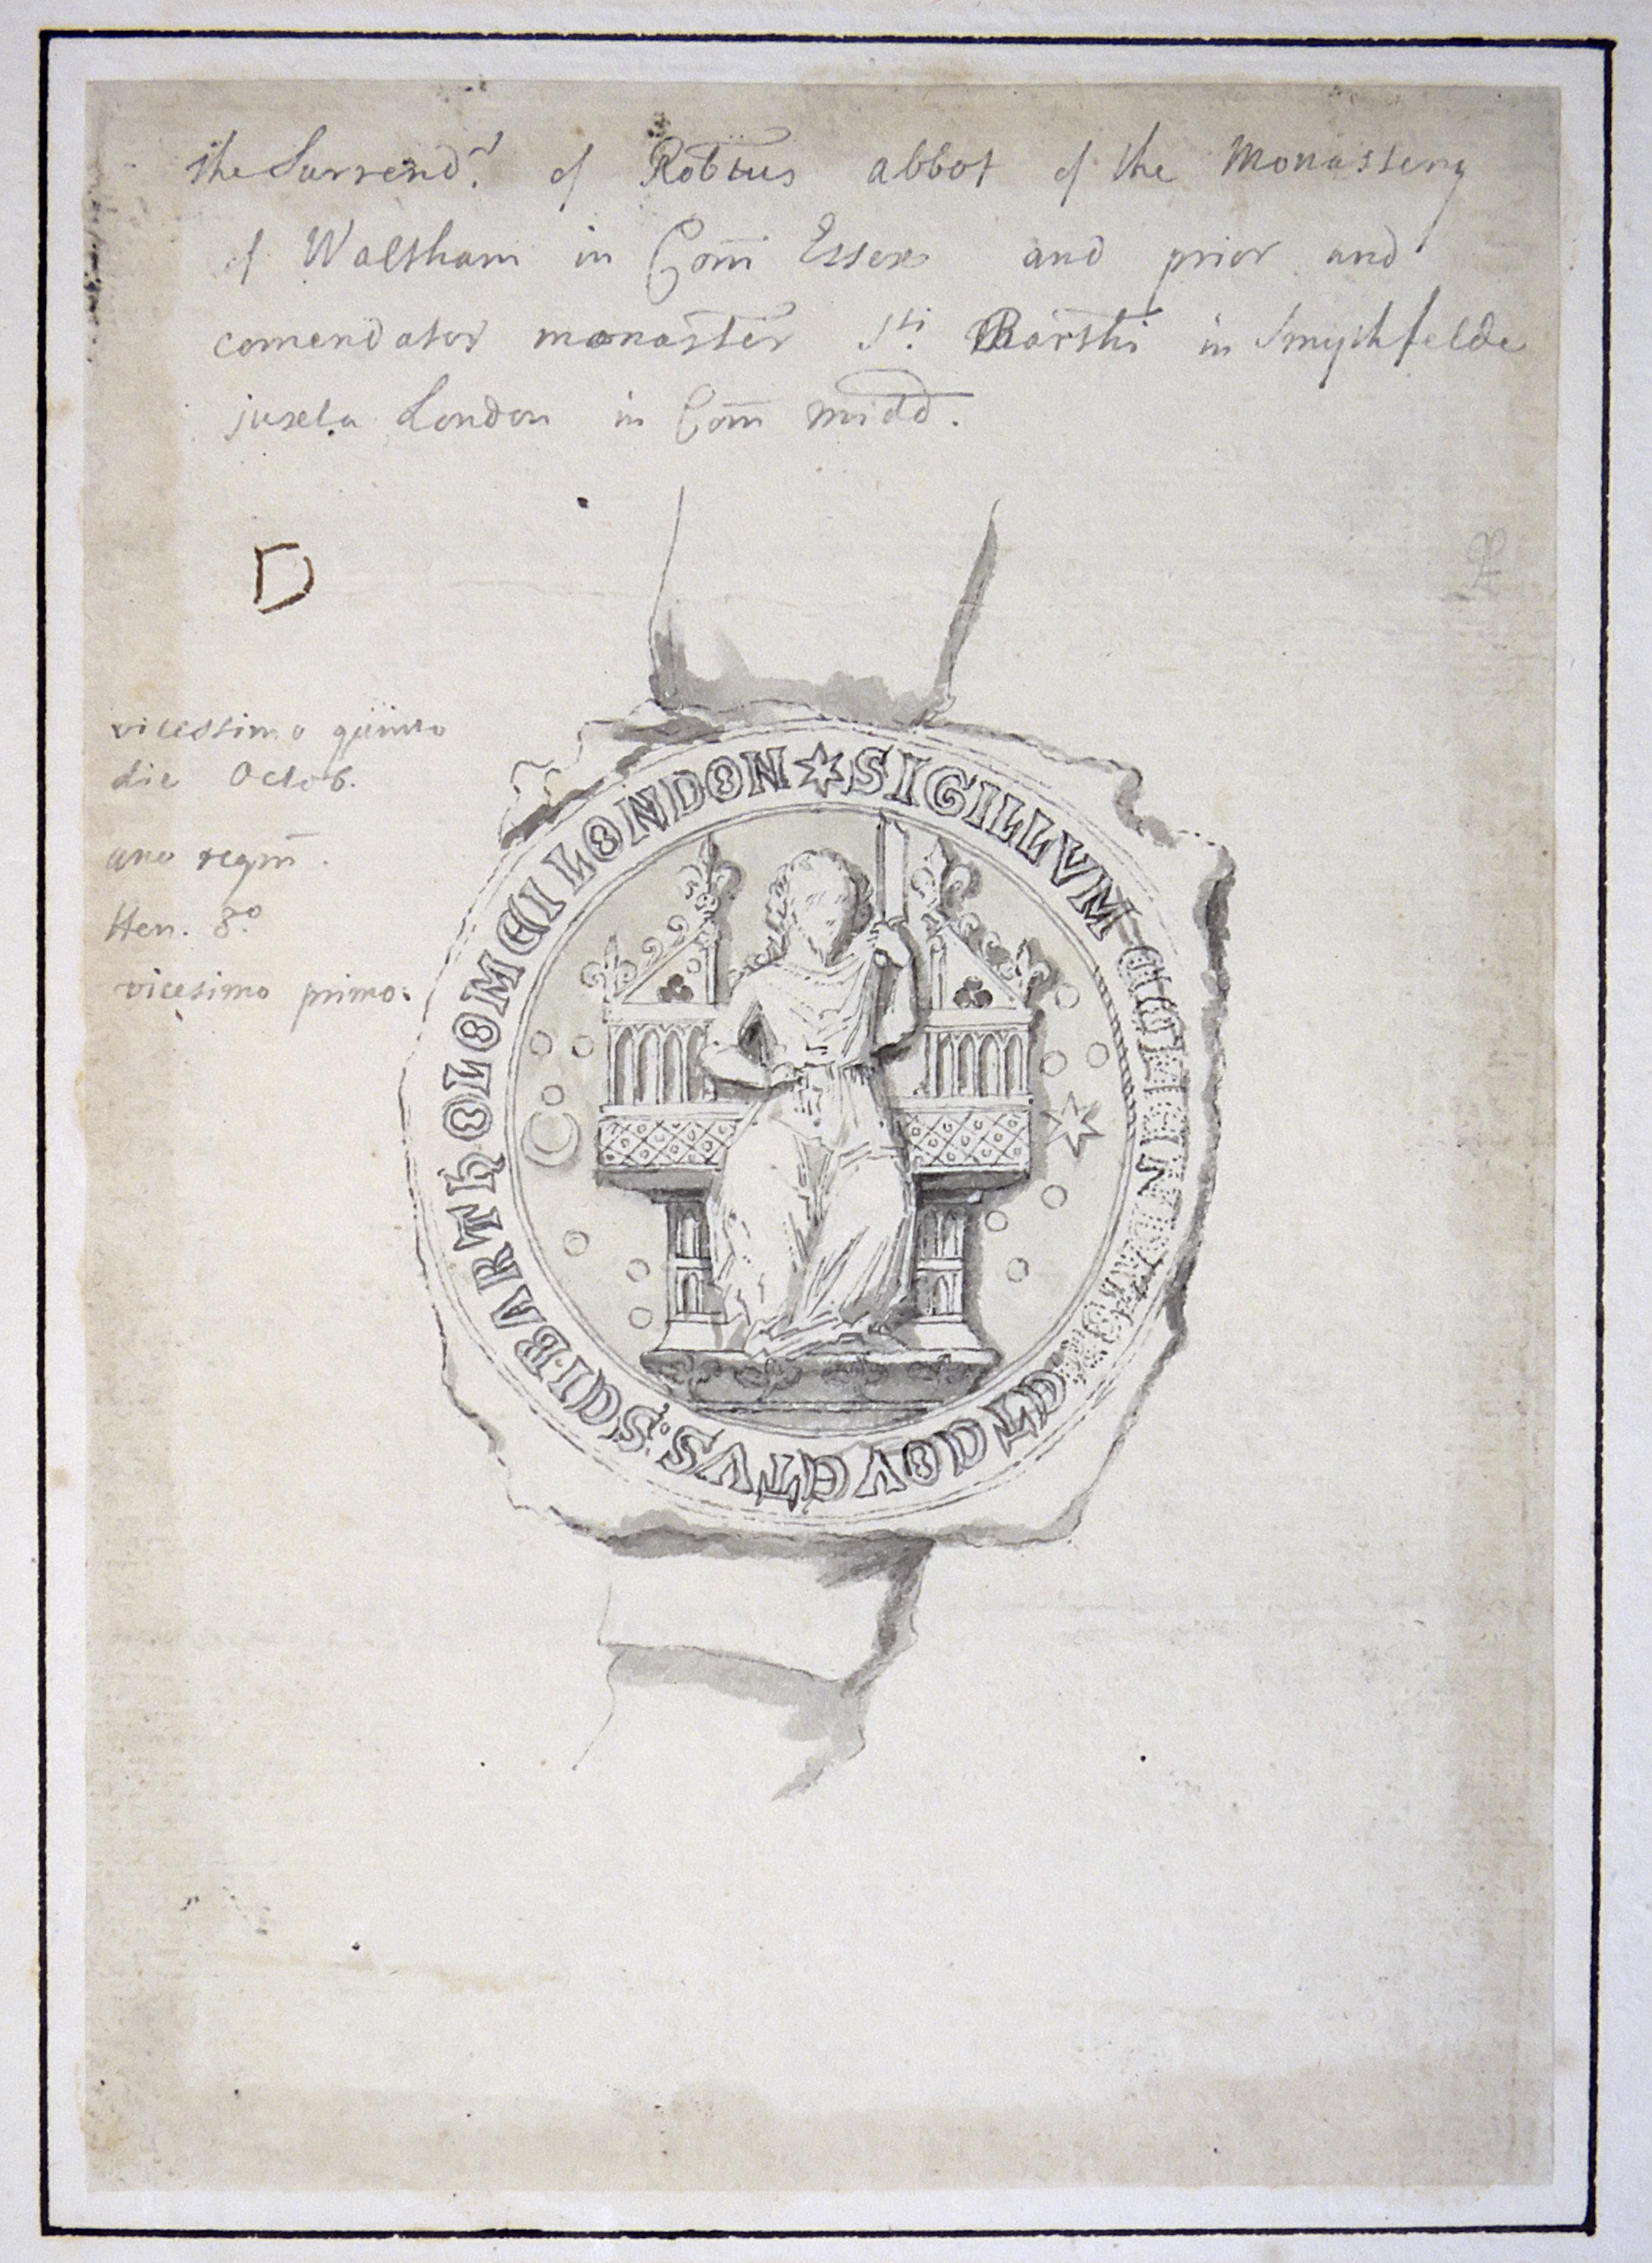 the Surrend.r of Robtus abbot of the Monastery
of Waltham in Com̄ Essex and prior and
comendator monaster Sti Barthi in Smythfelde
juxta London in Com̄ Midd.
D
vicessimo quinto
die Octob.
ano regni.
Hen. 8.o
vicesimo primo.
✶ SIGILLVM COVETVS : SCI : BARTHOLOMEI LONDON